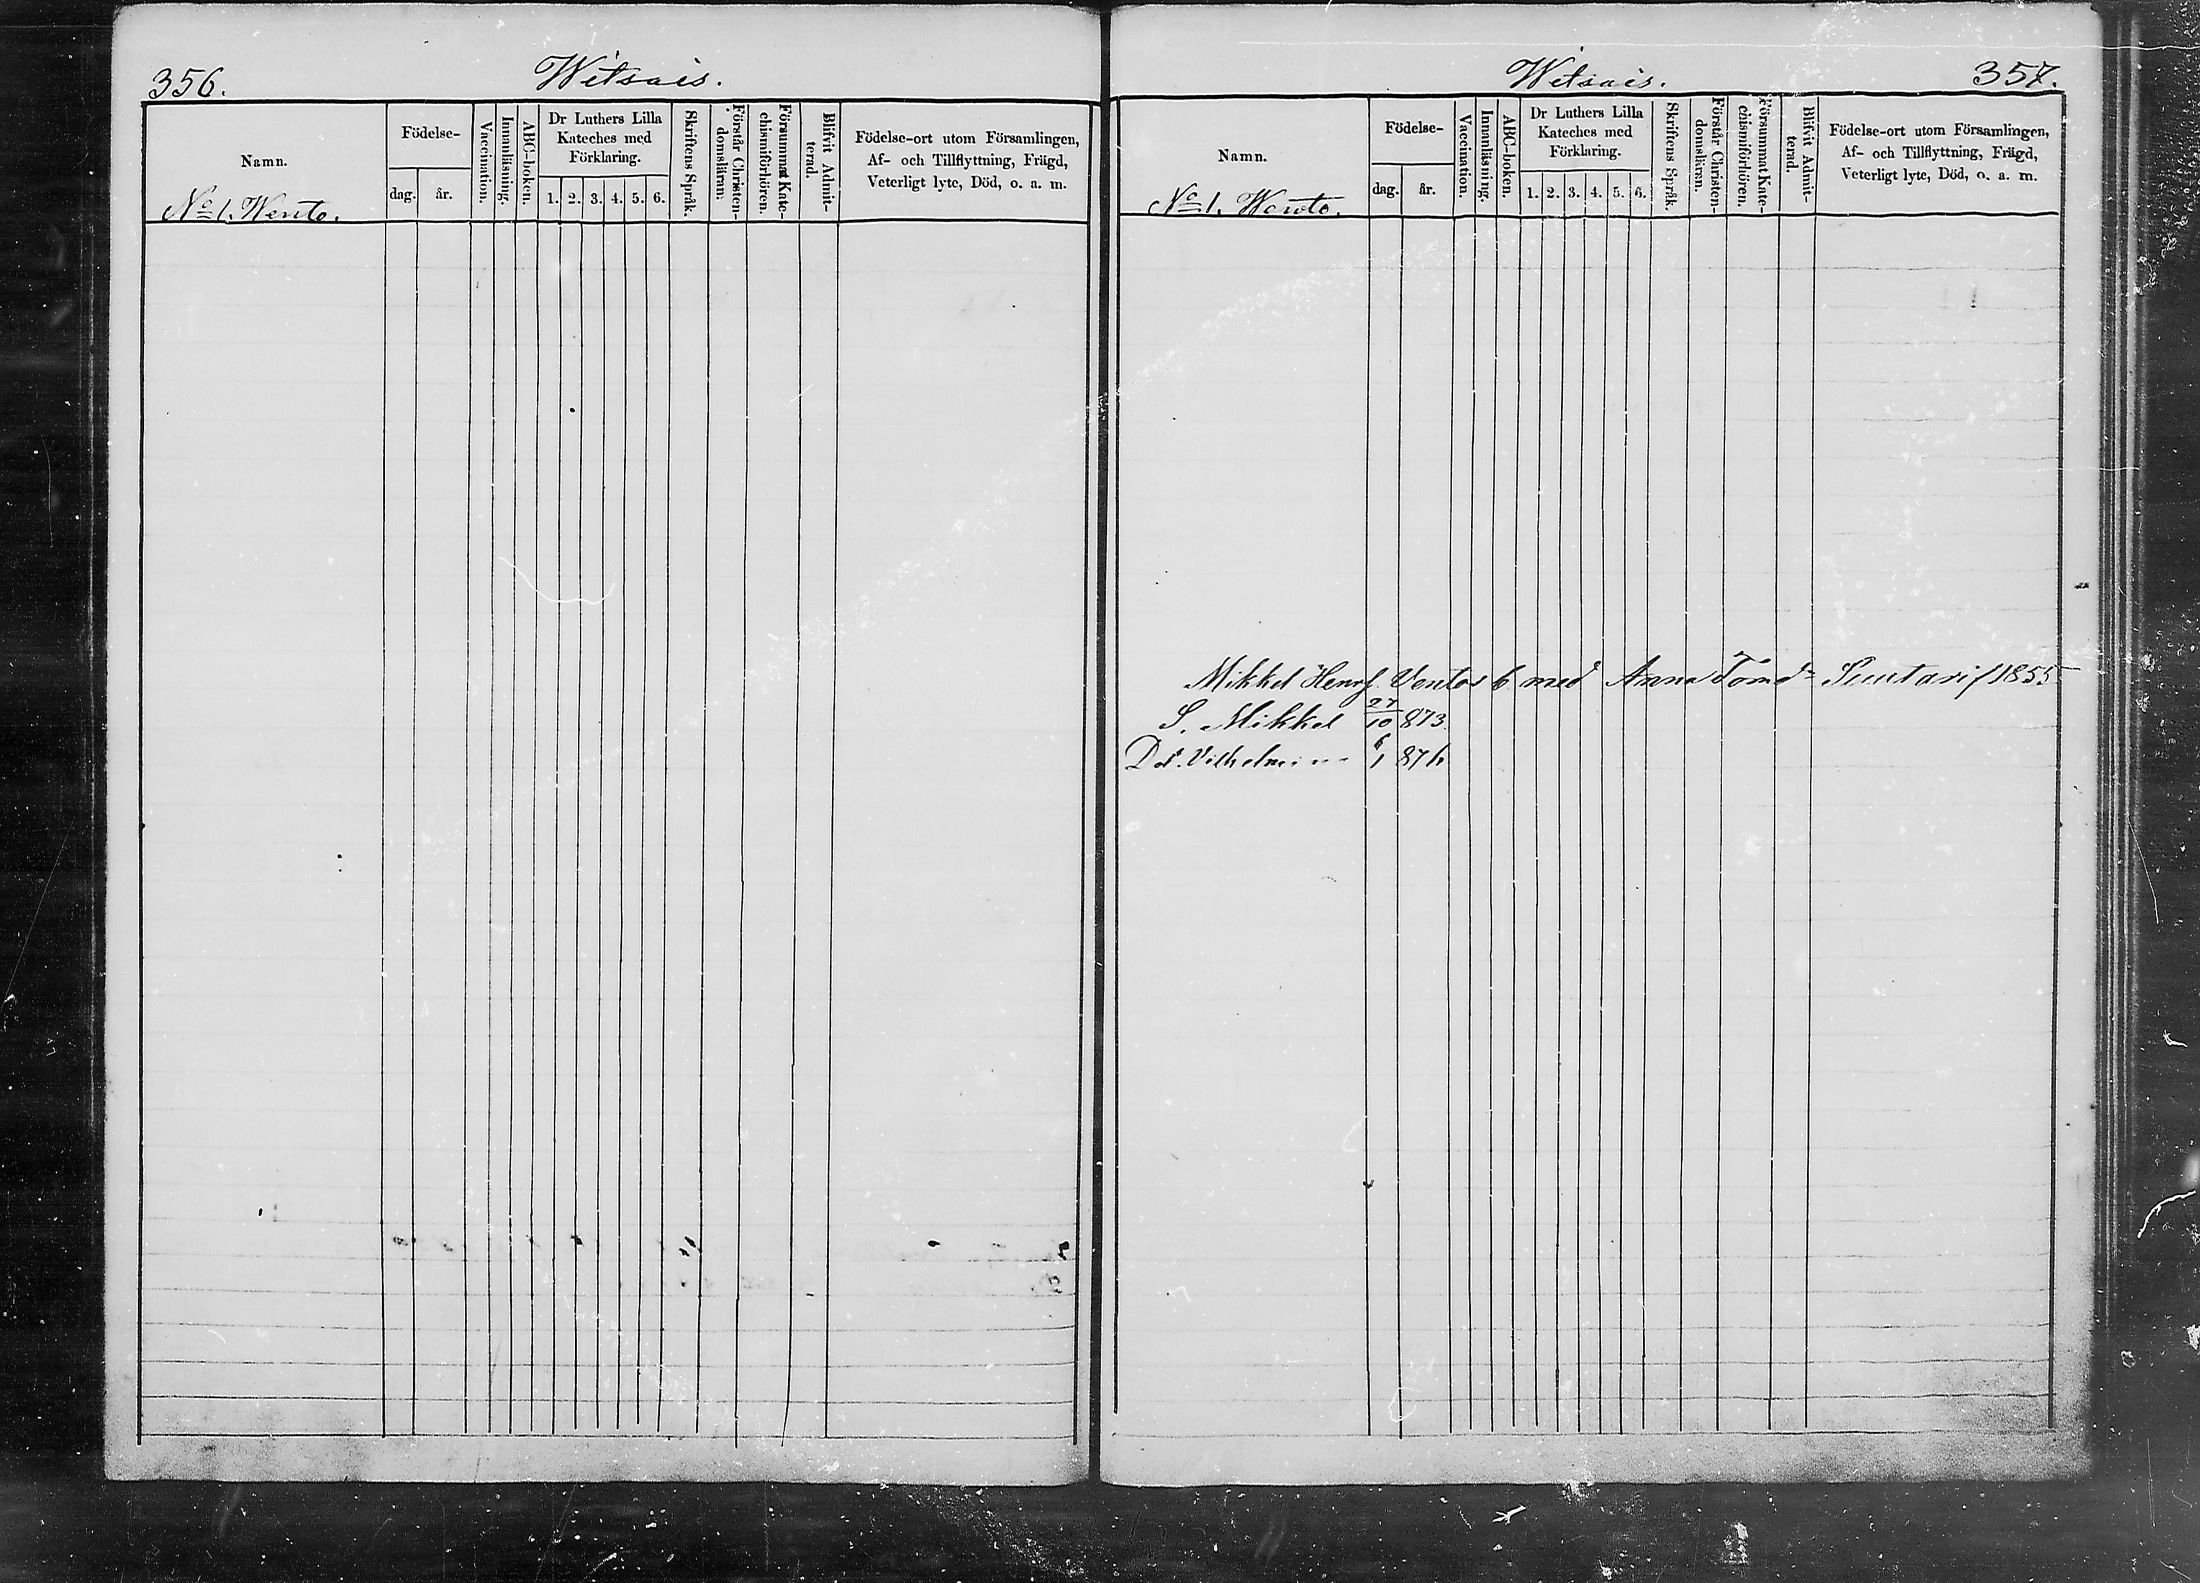 356.
Witsais.
Namn.
Födelse-
dag. år.
Vaccination.
Innanläsning.
ABC-boken.
Dr Luthers Lilla
Kateches med
Förklaring.
1. 2. 3. 4. 5. 6.
Skriftens Språk.
Förstår Christen-
domsläran.
Försummat Kate-
chismiförhören.
Blifvit Admit-
terad.
Födelse-ort utom Församlingen,
Af- och Tillflyttning, Frägd,
Veterligt lyte, Död, o. a. m.
No 1. Wento.
Witsais.
357.
Namn.
Födelse-
dag. år.
Vaccination.
Innanläsning.
ABC-boken.
Dr Luthers Lilla
Kateches med
Förklaring.
1. 2. 3. 4. 5. 6.
Skriftens Språk.
Förstår Christen-
domsläran.
Försummat Kate-
chismiförhören.
Blifvit Admit-
terad.
Födelse-ort utom Församlingen,
Af- och Tillflyttning, Frägd,
Veterligt lyte, Död, o. a. m.
No 1. Wento.
Mikkel Henrs. Ventos 6 med Anna Tomdr f 1855
S. Mikkel 27/10 873.
Dot. Vilhelmina 6/1 876